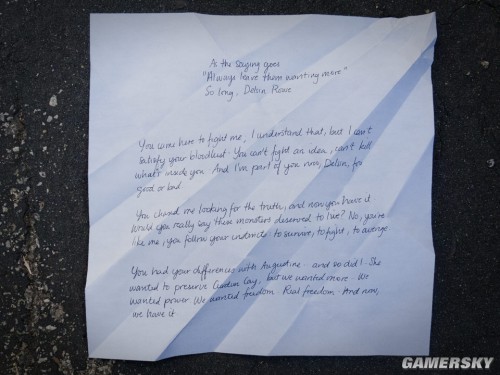 As the saying goes
"Always leave them wanting more"
So long, Delsin Rowe
You were here to fight me, I understand that, but I can't
satisfy your bloodlust. You can't fight an idea, can't kill
what's inside you. And I'm part of you now, Delsin, for
good or bad.
You chased me looking for the truth, and now you have it.
Would you really say these monsters deserved to live? No, you're
like me, you follow your instincts: to survive, to fight, to avenge
You had your differences with Augustine - and so did I. She
wanted to preserve Curdun Cay, but we wanted more. We
wanted power. We wanted freedom. Real freedom. And now,
we have it
GAMERSKY